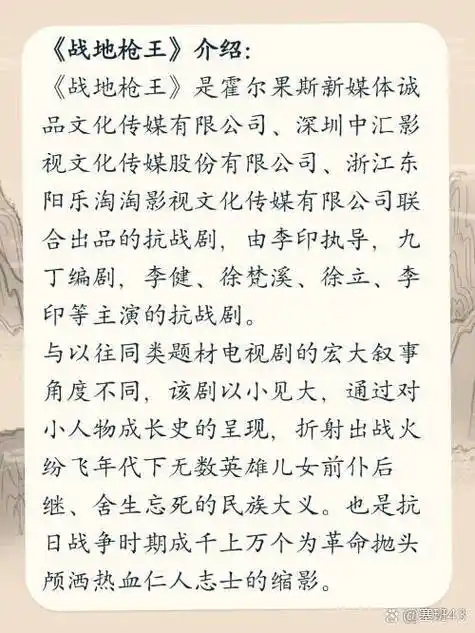 《战地枪王》介绍：
《战地枪王》是霍尔果斯新媒体诚
品文化传媒有限公司、深圳中汇影
视文化传媒股份有限公司、浙江东
阳乐淘淘影视文化传媒有限公司联
合出品的抗战剧，由李印执导，九
丁编剧，李健、徐梵溪、徐立、李
印等主演的抗战剧。
与以往同类题材电视剧的宏大叙事
角度不同，该剧以小见大，通过对
小人物成长史的呈现，折射出战火
纷飞年代下无数英雄儿女前仆后
继、舍生忘死的民族大义。也是抗
日战争时期成千上万个为革命抛头
颅洒热血仁人志士的缩影。
@塞班43